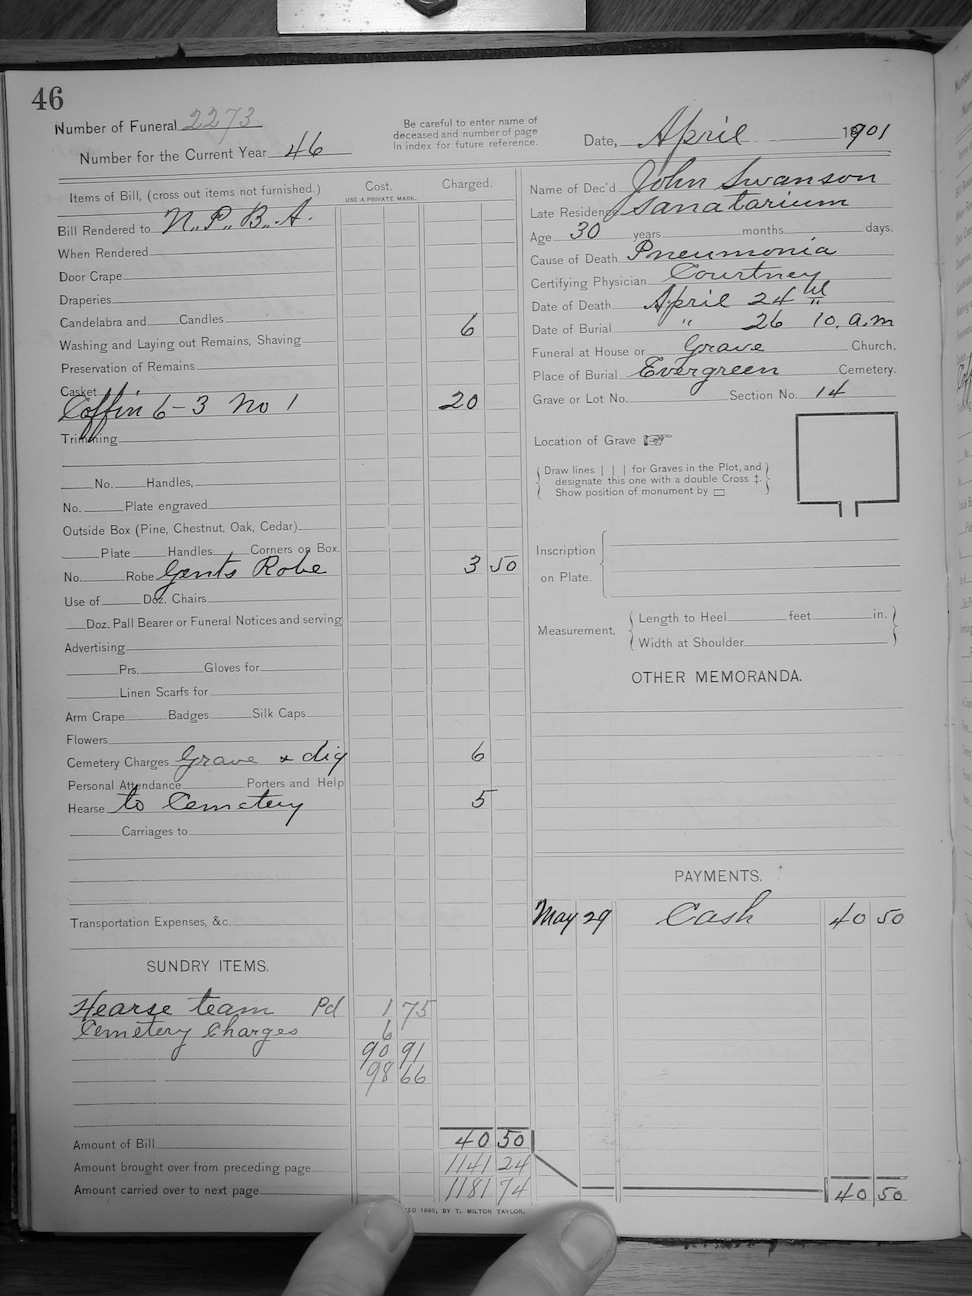 46
Number of Funeral 2273
Number for the Current Year 46
Be careful to enter name of
deceased and number of page
in index for future reference.
Date, April 1901
Items of Bill, (cross out items not furnished.)
Cost.
USE A PRIVATE MARK.
Charged.
Bill Rendered to N.P.B.A.
When Rendered
Door Crape
Draperies
Candelabra and Candles
Washing and Laying out Remains, Shaving 6
Preservation of Remains
Casket
Coffin 6-3 No 1 20
Trimming
No. Handles,
No. Plate engraved
Outside Box (Pine, Chestnut, Oak, Cedar)
Plate Handles Corners on Box.
No. Robe Gents Robe 3 50
Use of Doz. Chairs
Doz. Pall Bearer or Funeral Notices and serving
Advertising
Prs. Gloves for
Linen Scarfs for
Arm Crape Badges Silk Caps
Flowers
Cemetery Charges Grave & dig 6
Personal Attendance Porters and Help
Hearse to Cemetery 5
Carriages to
Transportation Expenses, &c.
SUNDRY ITEMS.
Hearse team Pd 1 75
Cemetery Charges 6
90 91
98 66
Amount of Bill 40 50
Amount brought over from preceding page 1141 24
Amount carried over to next page 1181 74
Name of Dec'd John Swanson
Late Residence Sanatarium
Age 30 years months days.
Cause of Death Pneumonia
Certifying Physician Courtney
Date of Death April 24 th
Date of Burial " 26 10. a.m
Funeral at House or Grave Church.
Place of Burial Evergreen Cemetery.
Grave or Lot No. Section No. 14
Location of Grave ☞
Draw lines | | | for Graves in the Plot, and
designate this one with a double Cross ‡.
Show position of monument by ▭
Inscription
on Plate.
Measurement,
Length to Heel feet in.
Width at Shoulder
OTHER MEMORANDA.
PAYMENTS.
May 29 Cash 40 50
40 50
1880, BY T. MILTON TAYLOR.